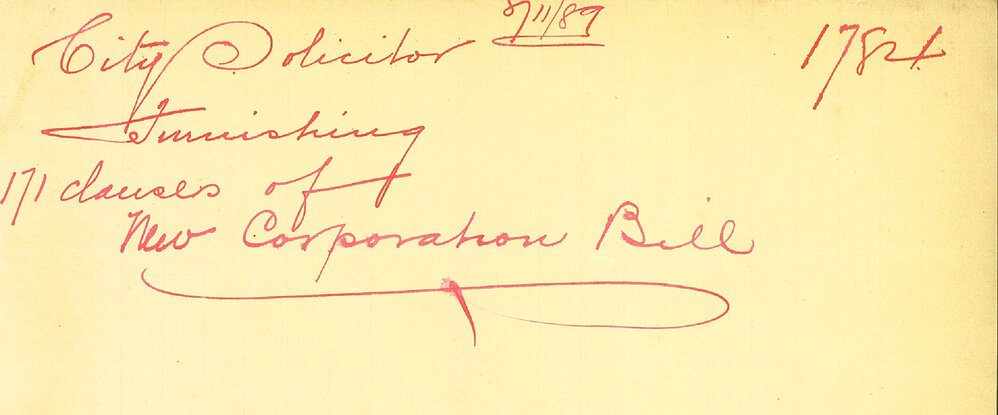 City Solicitor 8/11/89 1784
Furnishing
171 clauses of
New Corporation Bill